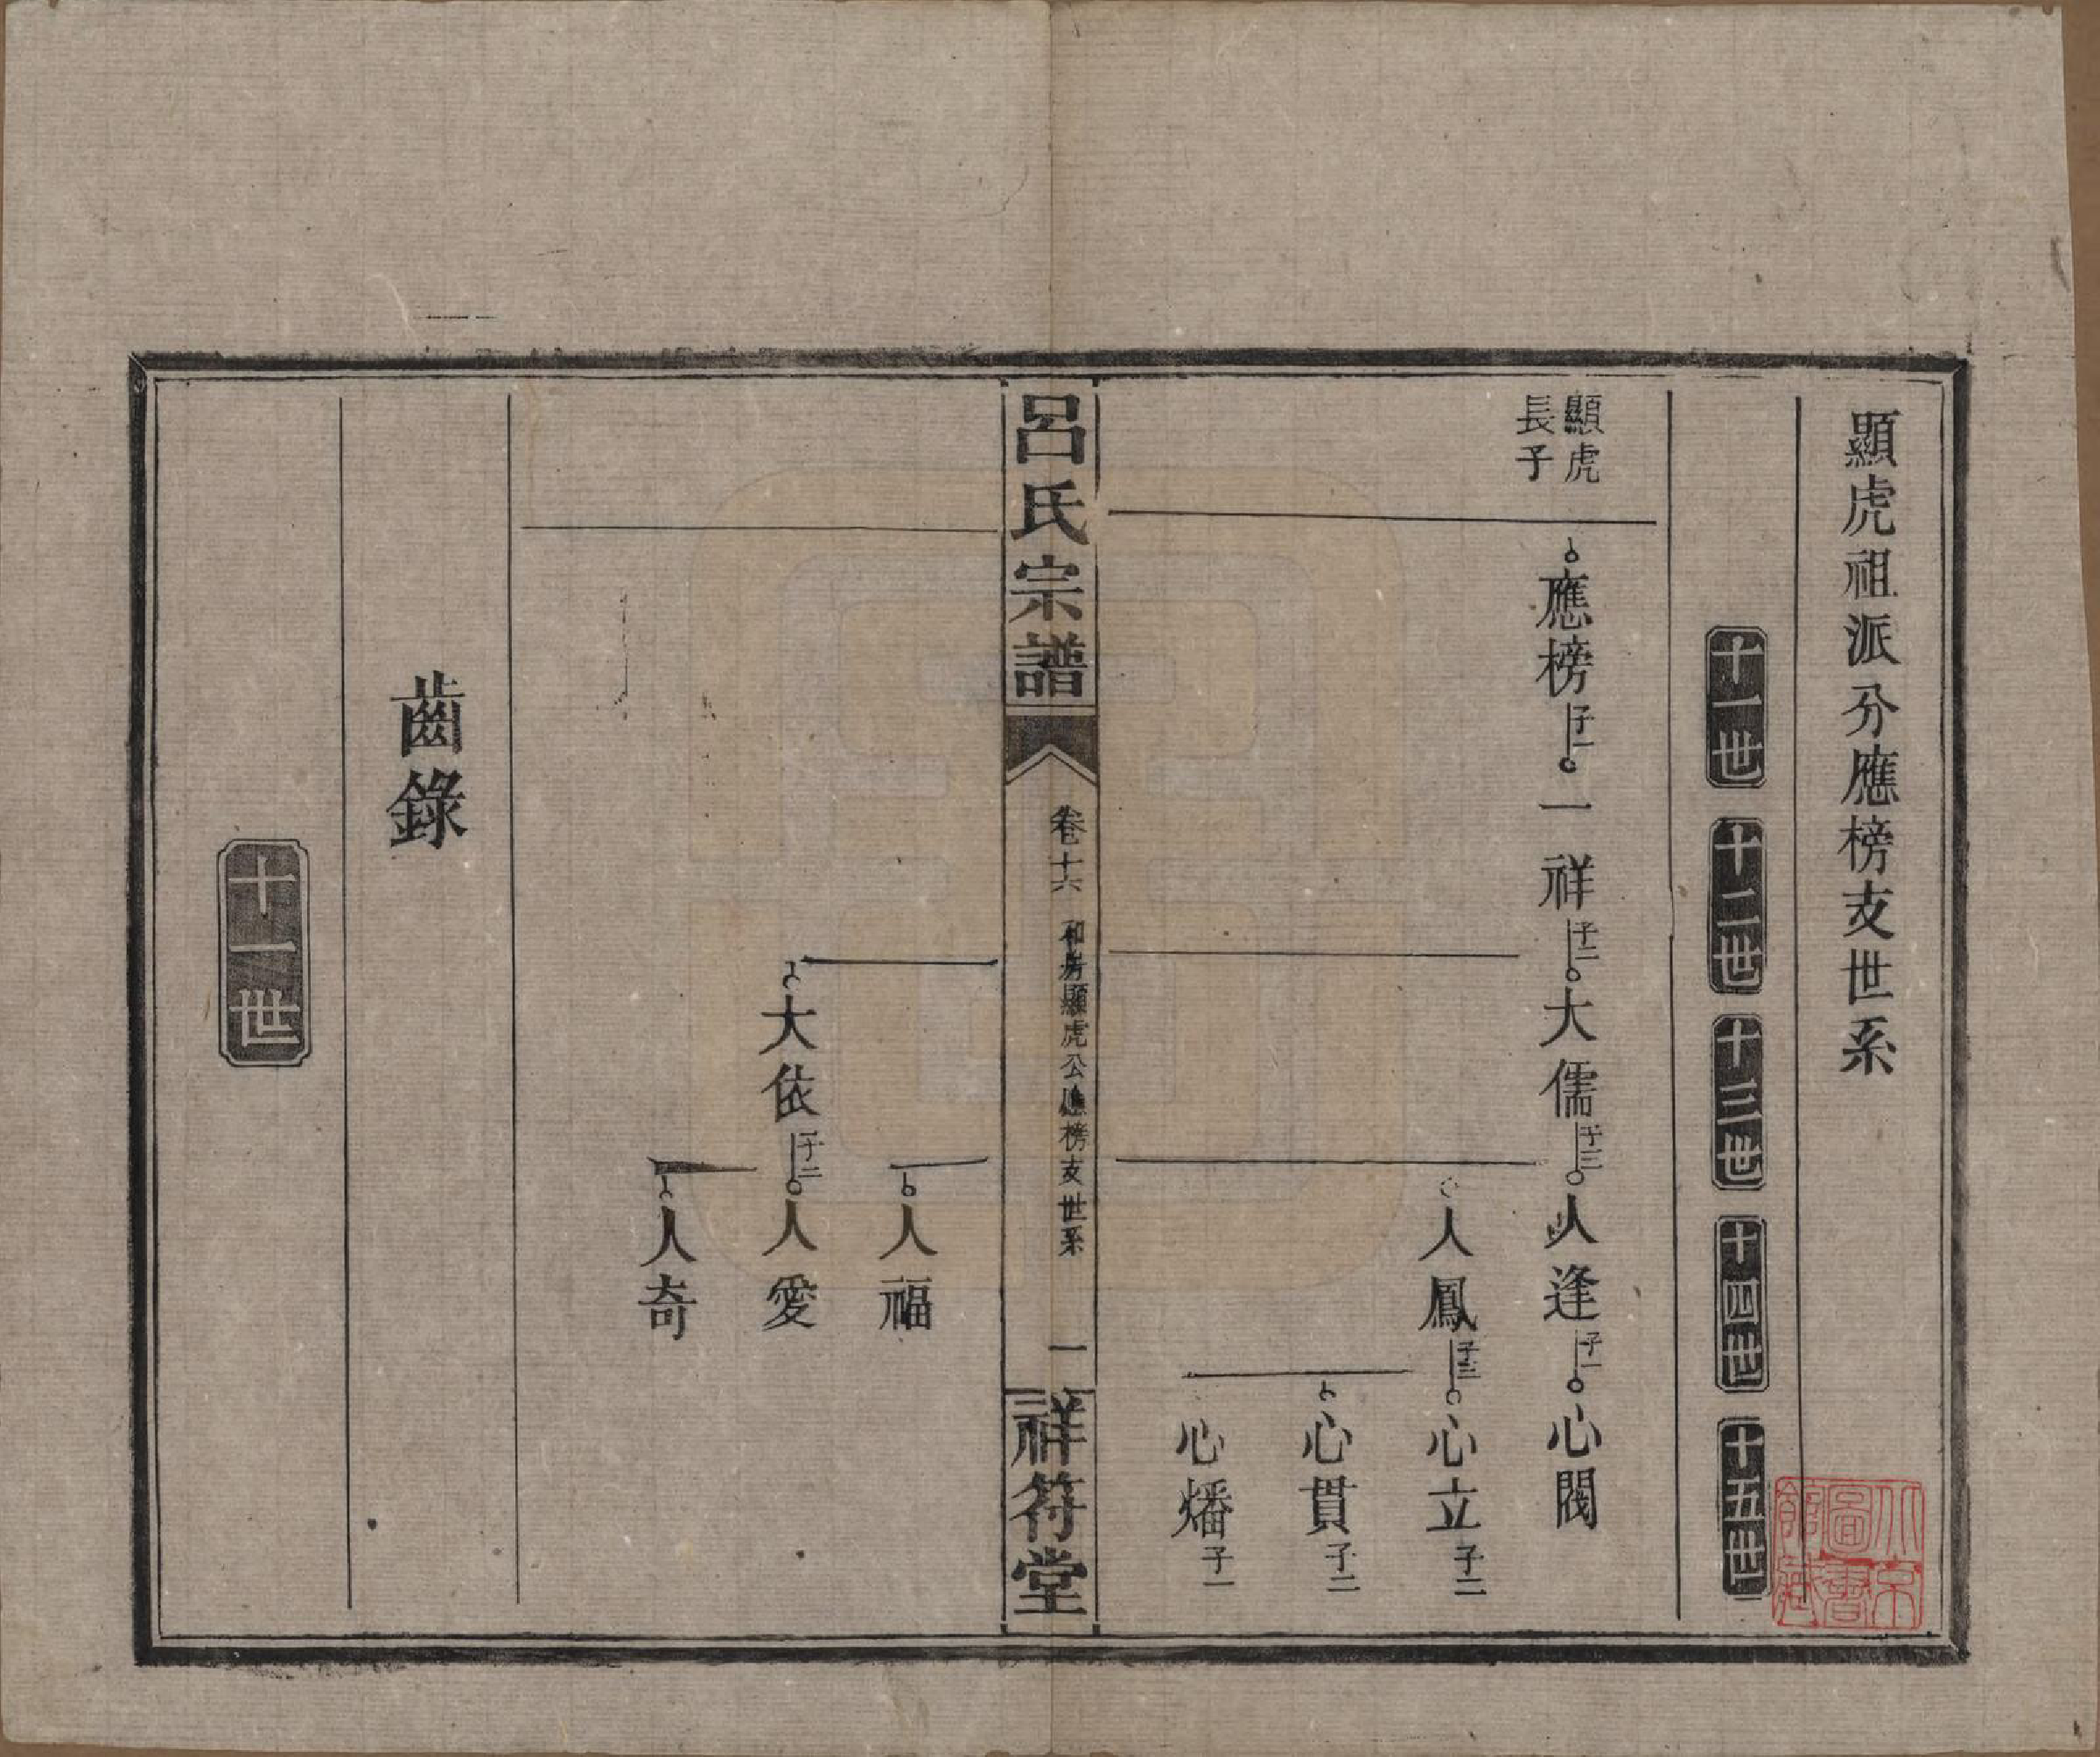 顯虎祖派分應榜支世系
十一世
十二世
十三世
十四世
十五世
顯虎
長子
應榜子一
一祥子二
大儒子三
人逢子一
心閥
人鳳子三
心立子二
心貫子二
心燔子一
呂氏宗譜
卷十六
和房顯虎公應榜支世系
一
祥符堂
人福
大依子二
人愛
人奇
齒錄
十一世
北京
圖書
館藏